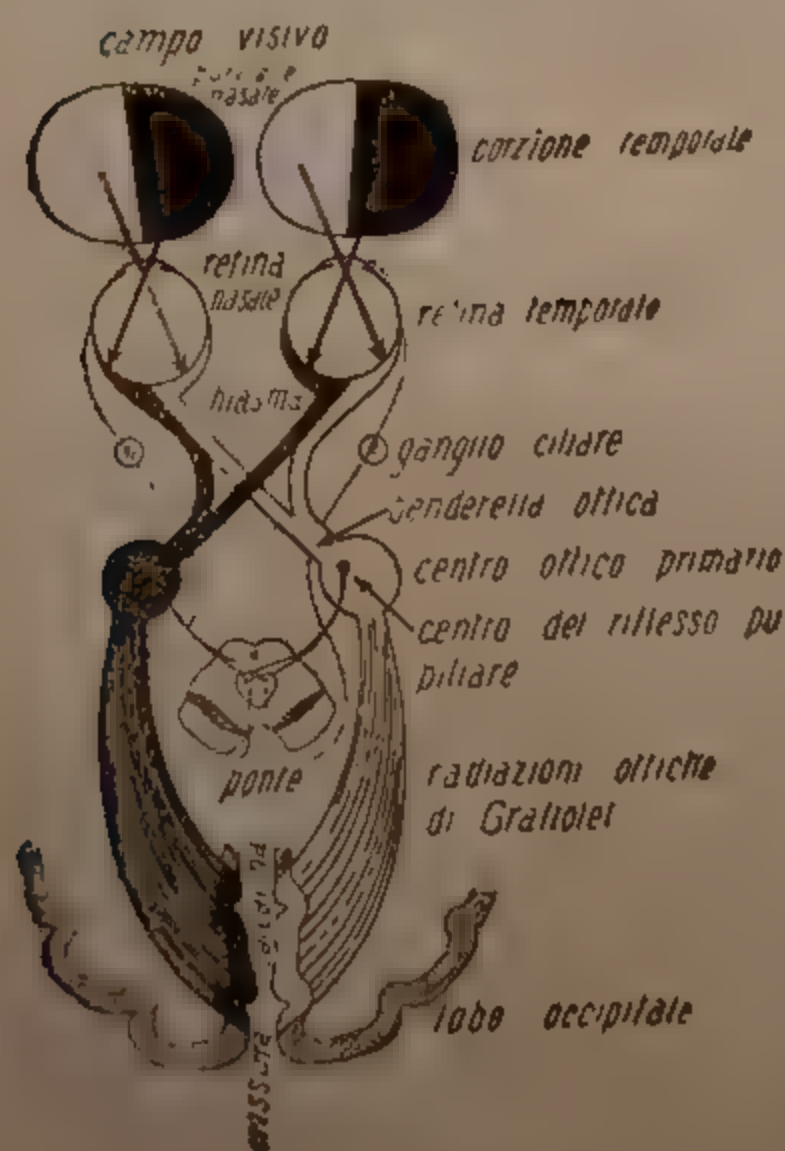 campo visivo
nasale
corzione temporale
retina
nasale
retina temporale
ganglio ciliare
benderella ottica
centro ottico primario
centro del riflesso pu
pillare
ponte
radiazioni ottiche
di Gratiolet
lobo occipitale